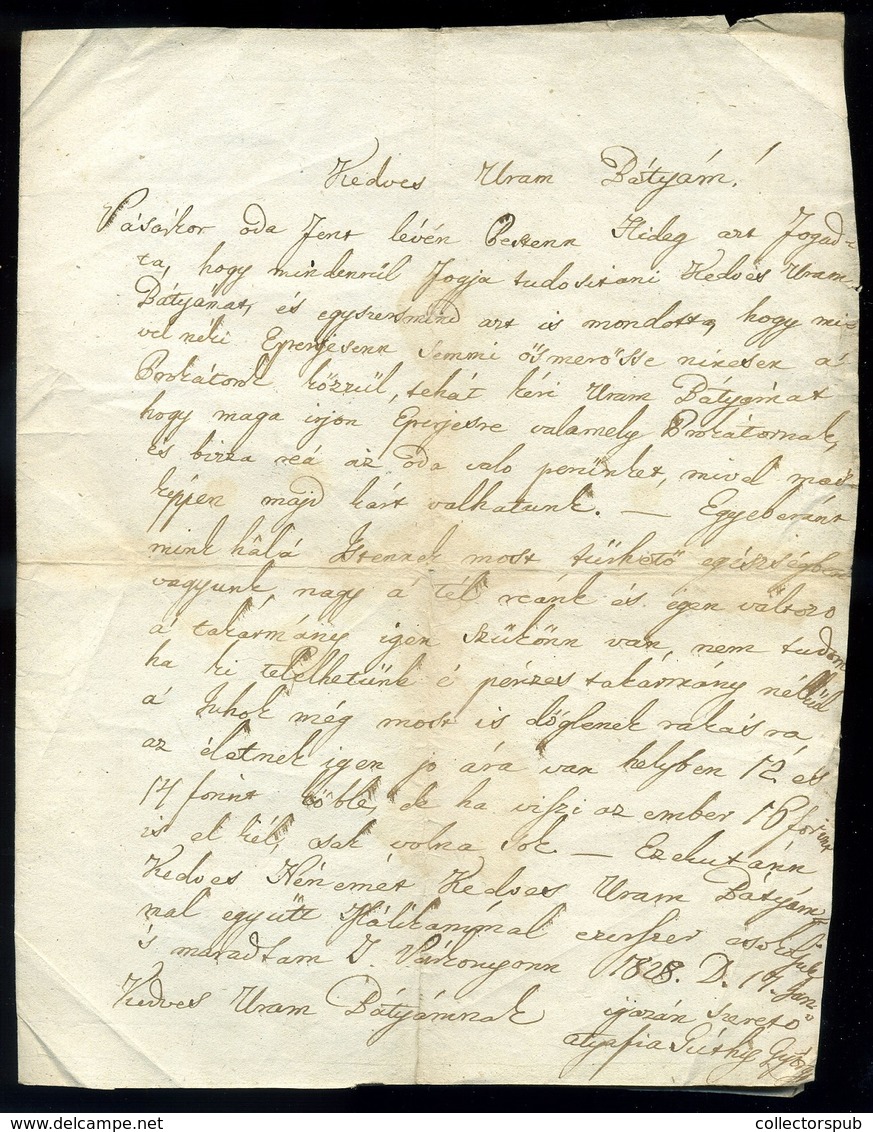 Kedves Uram Bátyám!
Vásárkor oda fent lévén Pestenn Hideg azt fogad-
ta, hogy mindenrűl fogja tudositani Kedves Uram
Bátyámat, és egyszersmind azt is mondotta, hogy mi-
vel néki Eperjesenn semmi ösmerősse nincsen á
Prokátorok közzűl, tehát kéri Uram Bátyámat
hogy maga irjon Eperjesre valamely Prokátornak,
és bizza reá az oda valo perünket, mivel más-
képpen majd kárt valhatunk. — Egyeberánt
mink hálá Istennek most türhető egésségben
vagyunk, nagy á tél reánk és igen változo
á takármány igen szűkönn van, nem tudom
ha ki telelhetünk é pénzes takármány nélkűl
á Juhok még most is döglenek rakásra,
az életnek igen jo ára van helyben 12 és
14 forint köble, de ha viszi az ember 16 forint
is el kél, csak volna sok — Ezekutánn
Kedves Nénémét Kedves Uram Bátyám-
mal együtt ezerszer csokoljuk
's maradtam 1828. D. 19. Jan.
Kedves Uram Bátyámnak igazán szerető
atyafia
collectorspub